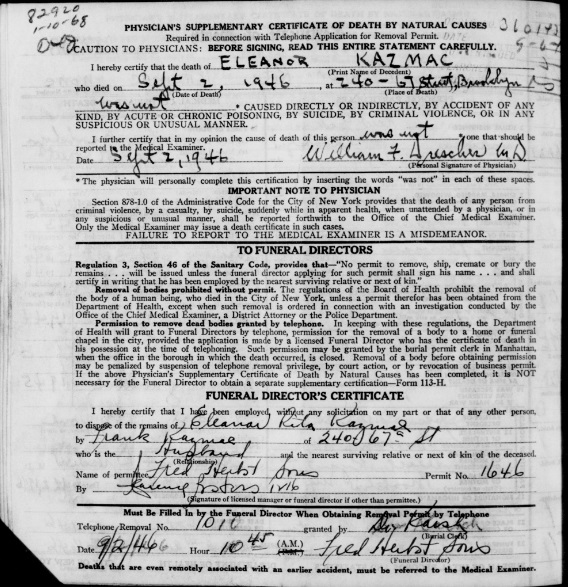 82920
1-10-68
PHYSICIAN'S SUPPLEMENTARY CERTIFICATE OF DEATH BY NATURAL CAUSES
Required in connection with Telephone Application for Removal Permit. DATE
CAUTION TO PHYSICIANS: BEFORE SIGNING, READ THIS ENTIRE STATEMENT CAREFULLY.
I hereby certify that the death of ELEANOR KAZMAC
(Print Name of Decedent)
who died on Sept 2, 1946, at 240-67 Street, Brooklyn
(Date of Death) (Place of Death)
was not * CAUSED DIRECTLY OR INDIRECTLY, BY ACCIDENT OF ANY
KIND, BY ACUTE OR CHRONIC POISONING, BY SUICIDE, BY CRIMINAL VIOLENCE, OR IN ANY
SUSPICIOUS OR UNUSUAL MANNER.
I further certify that in my opinion the cause of death of this person was not * one that should be
reported to the Medical Examiner.
Date Sept 2, 1946 William F. Drescher M.D.
(Personal Signature of Physician)
* The physician will personally complete this certificate by inserting the words "was not" in each of these spaces.
IMPORTANT NOTE TO PHYSICIAN
Section 878-1.0 of the Administrative Code for the City of New York provides that the death of any person from
criminal violence, by a casualty, by suicide, suddenly while in apparent health, when unattended by a physician, or in
any suspicious or unusual manner, shall be reported forthwith to the Office of the Chief Medical Examiner.
Only the Medical Examiner may issue a death certificate in such cases.
FAILURE TO REPORT TO THE MEDICAL EXAMINER IS A MISDEMEANOR.
TO FUNERAL DIRECTORS
Regulation 3, Section 46 of the Sanitary Code, provides that—"No permit to remove, ship, cremate or bury the
remains . . . will be issued unless the funeral director applying for such permit shall sign his name . . . and shall
certify in writing that he has been employed by the nearest surviving relative or next of kin."
Removal of bodies prohibited without permit. The regulations of the Board of Health prohibit the removal of
the body of a human being, who died in the City of New York, unless a permit therefor has been obtained from the
Department of Health, except when such removal is ordered in connection with an investigation conducted by the
Office of the Chief Medical Examiner, a District Attorney or the Police Department.
Permission to remove dead bodies granted by telephone. In keeping with these regulations, the Department
of Health will grant to Funeral Directors by telephone, permission for the removal of a body to a home or funeral
chapel in the city, provided the application is made by a licensed Funeral Director who has the certificate of death in
his possession at the time of telephoning. Such permission may be granted by the burial permit clerk in Manhattan,
when the office in the borough in which the death occurred, is closed. Removal of a body before obtaining permission
may be penalized by suspension of telephone removal privilege, by court action, or by revocation of business permit.
If the above Physician's Supplementary Certificate of Death by Natural Causes has been completed, it is NOT
necessary for the Funeral Director to obtain a separate supplementary certification—Form 113-H.
FUNERAL DIRECTOR'S CERTIFICATE
I hereby certify that I have been employed, without any solicitation on my part or that of any other person,
to dispose of the remains of Eleanor Rita Kazmac
by Frank Kazmac of 240 67th St
who is the Husband and the nearest surviving relative or next of kin of the deceased.
(Relationship)
Name of permittee Fred Herbst Sons Permit No. 1646
By
(Signature of licensed manager or funeral director if other than permittee.)
Must Be Filled in by the Funeral Director When Obtaining Removal Permit by Telephone
Telephone Removal No. 1010 granted by
(Burial Clerk)
Date 9/2/46 Hour 10 45 (A.M.) (P.M.) Fred Herbst Sons
(Funeral Director)
Deaths that are even remotely associated with an earlier accident, must be referred to the Medical Examiner.